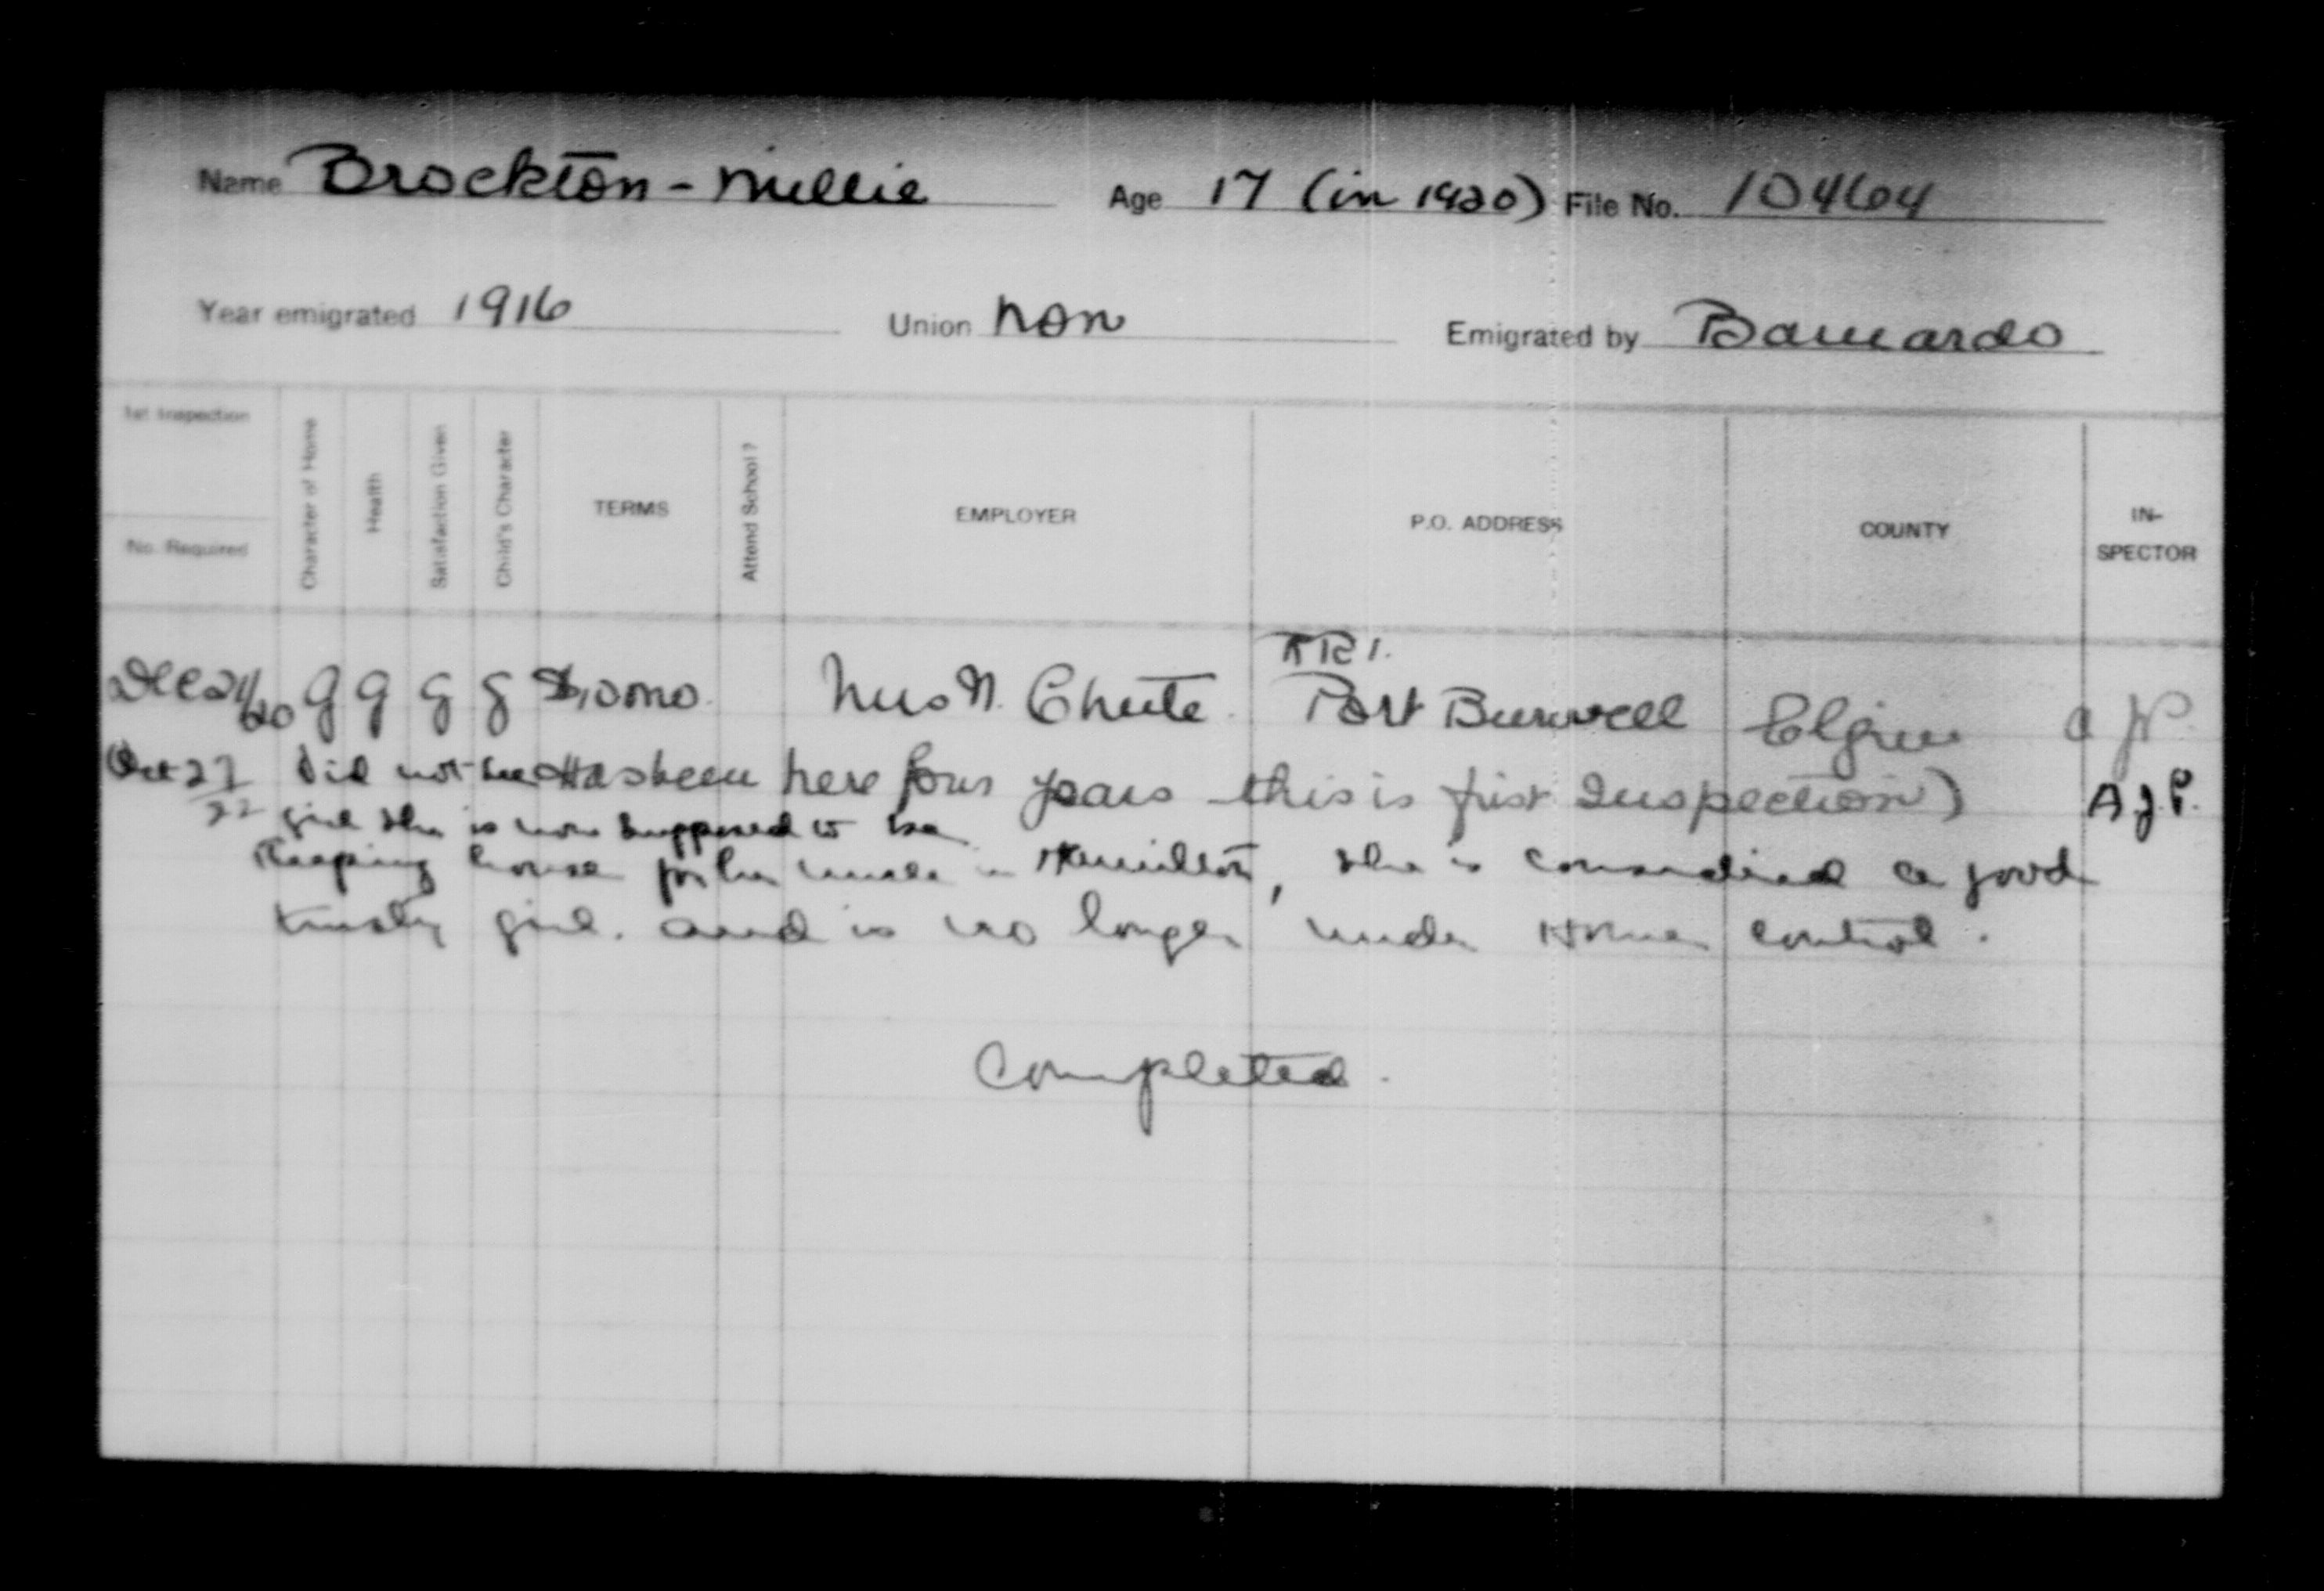 Name Brockton - Millie Age 17 (in 1920) File No. 10464
Year emigrated 1916 Union Non Emigrated by Barnardo
1st Inspection
No. Required
Character of Home
Health
Satisfaction Given
Child's Character
TERMS
Attend School?
EMPLOYER
P.O. ADDRESS
COUNTY
IN-
SPECTOR
RR1.
Dec 21/20 g g g g $10 mo. Mrs N. Chute. Port Burwell Elgin
Oct 27/22 Did not see Has been here four years this is first Inspection) A J P.
girl she is now supposed to be
Keeping house for her uncle in Hamilton, she is considered a good
trusty girl. and is no longer under Home control.
Completed.